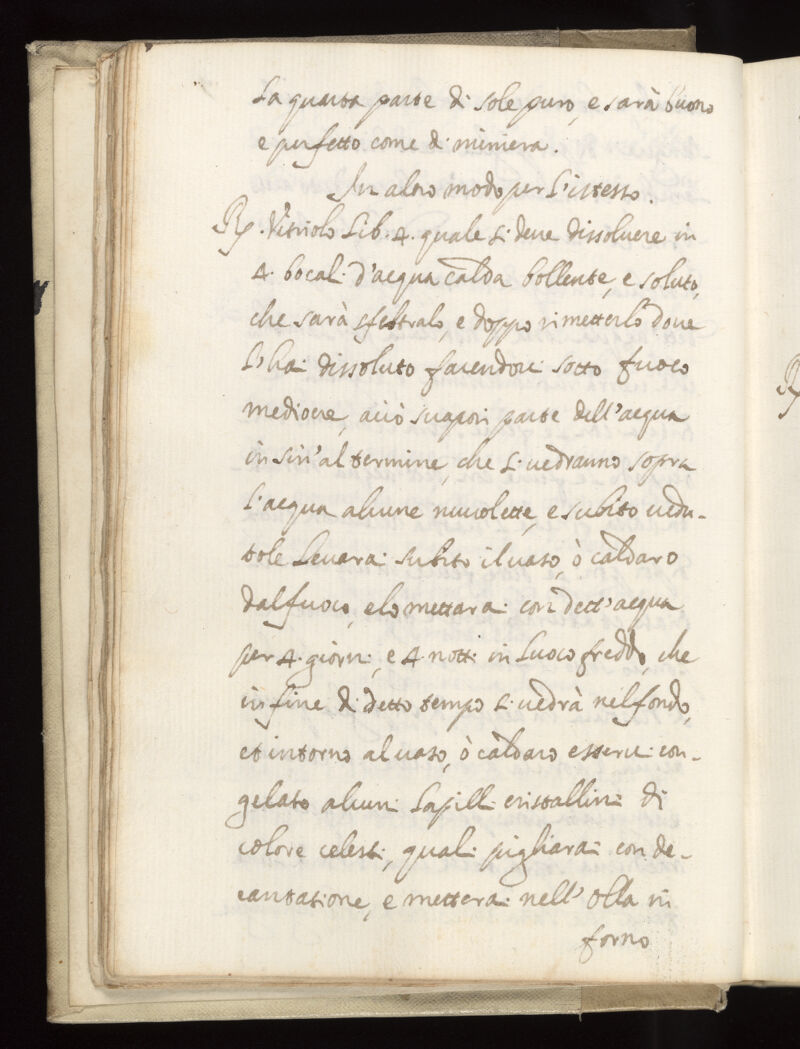 la quarta parte di sole puro, e sarà buono
e perfetto come di miniera.
In altro modo per l'istesso.
Rx. Vitriolo lib. 4. quale si deve dissolvere in
4. bocali d'acqua calda bollente, e soluto,
che sarà feltralo, e doppo rimetterlo dove
l'hai dissoluto facendovi sotto fuoco
mediocre, acciò svapori parte dell'acqua
in sin' al termine, che si vedranno sopra
l'acqua alcune nuvolette, e subito vedu-
tole levarai subito il vaso, ò caldaro
dal fuoco, e lo mettarai con dett'acqua
per 4. giorni, e 4. notti in luoco freddo, che
in fine di detto tempo si vedrà nel fondo,
et intorno al vaso, ò caldaro esservi con-
gelato alcuni lapilli cristallini di
colore celesti, quali pigliarai con de-
cantatione, e metterai nell' olla in
forno